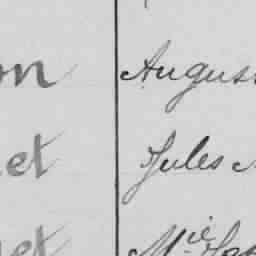 on Augus
et Jules
et Mie